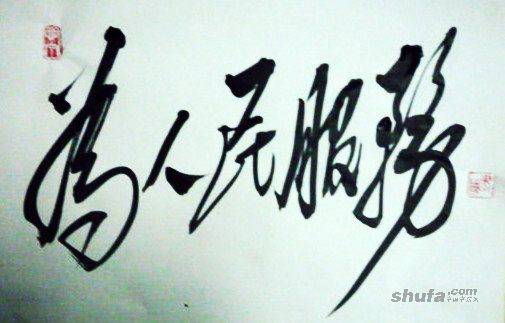 為人民服務
shufa.com